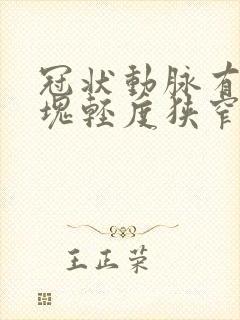 冠狀動脉有
塊輕度狹窄
王正荣